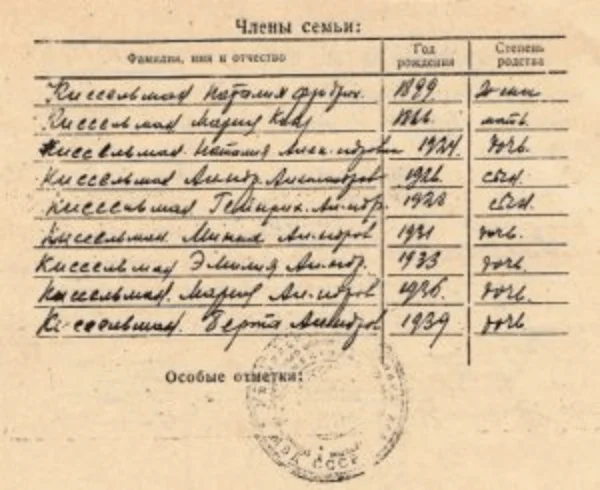 Члены семьи:
Фамилия, имя и отчество Год рождения Степень родства
Киссельман Наталия Фридрих. 1899 жена
Киссельман Мария Карл 1866 мать
Киссельман Наталия Александровн 1924 дочь
Киссельман Алек-др Александров 192 сын
Киссельман Гейнрих Ал-андр 1928 сын
Киссельман Минна Ал-андров 1931 дочь
Киссельман Эмилия Ал-андр. 1933 дочь
Киссельман Мария Ал-андров 1936 дочь
Киссельман Берта Ал-андров 1939 дочь
Особые отметки:
МВД СССР